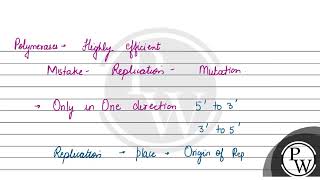 Polymerases → Highly efficient
Mistake - Replication - Mutation
→ Only in One direction 5' to 3'
3' to 5'
Replication → place → Origin of Rep
PW